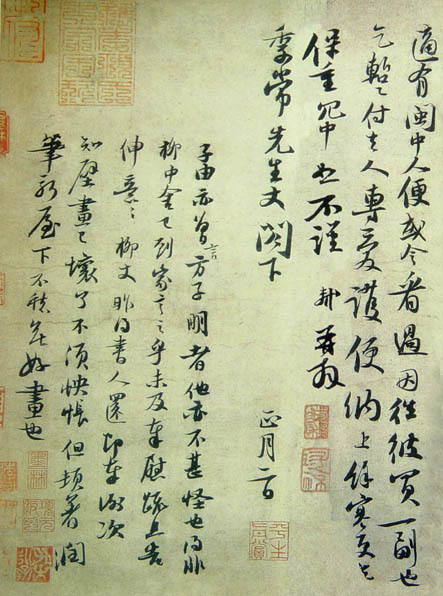 適有閩中人便或令看過因往彼買一副也
乞暫付去人專愛護便納上餘寒更乞
保重冗中恕不謹 軾再拜
季常先生丈閤下 正月二日
子由亦曾言方子明者他亦不甚怪也得非
柳中舍已到家言之乎未及奉慰疏且告
伸意〻柳丈昨得書人還即奉謝次
知壁畫已壞了不須怏悵但頓著潤
筆新屋下不愁無好畫也